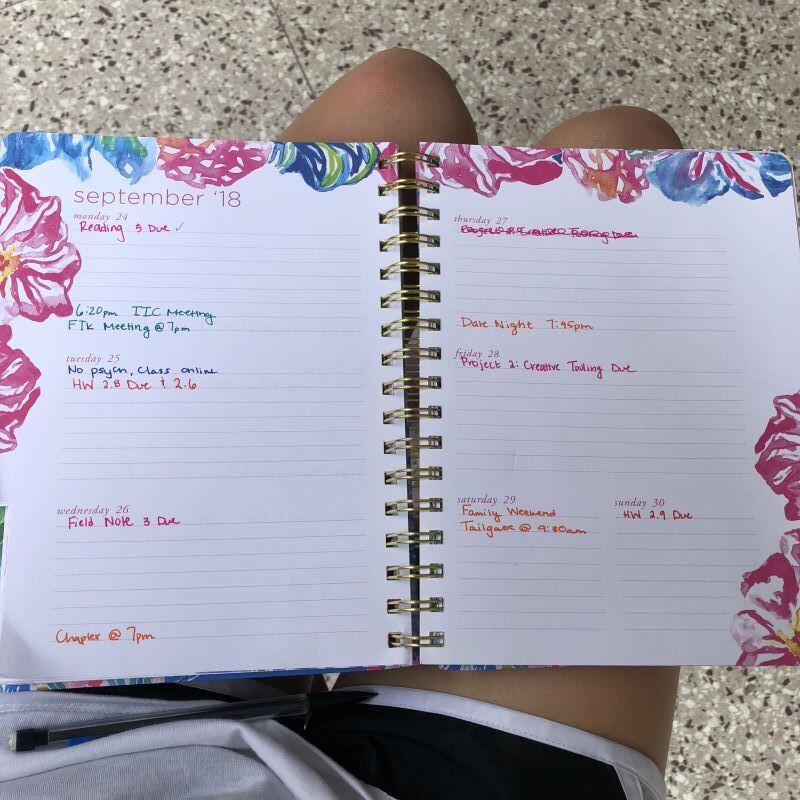 september '18
monday 24
Reading 5 Due ✓
6:20pm IIC Meeting
FTK Meeting @ 7pm
tuesday 25
No psych, Class online
HW 2.8 Due & 2.6
wednesday 26
Field Note 3 Due
Chapter @ 7pm
thursday 27
Date Night 7:45pm
friday 28
Project 2: Creative Tooling Due
saturday 29
Family Weekend
Tailgate @ 9:30am
sunday 30
HW 2.9 Due